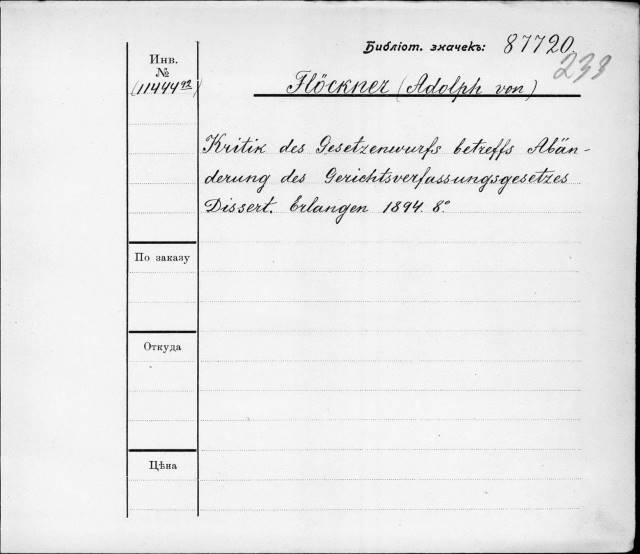 Библіот. значекъ: 87720
233
Инв.
№
(11444 92)
Flöckner (Adolph von)
Kritik des Gesetzenwurfs betreffs Abän-
derung des Gerichtsverfassungsgesetzes
Dissert. Erlangen 1894. 8°
По заказу
Откуда
Цѣна